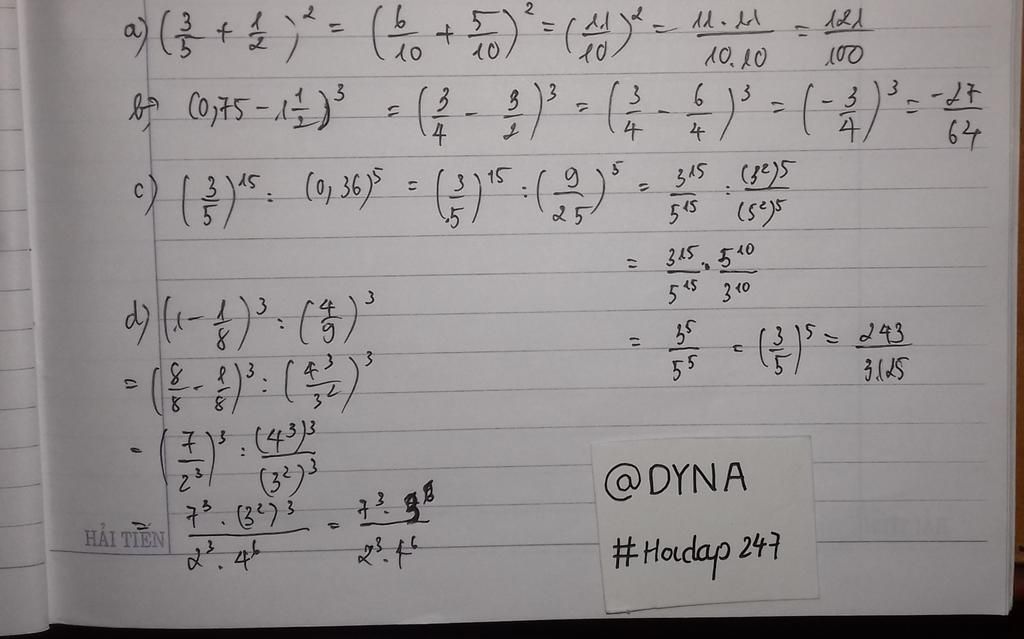 a) (3/5 + 1/2)² = (6/10 + 5/10)² = (11/10)² = 11.11/10.10 = 121/100
b) (0,75 - 1 1/2)³ = (3/4 - 3/2)³ = (3/4 - 6/4)³ = (-3/4)³ = -27/64
c) (3/5)¹⁵ : (0,36)⁵ = (3/5)¹⁵ : (9/25)⁵ = 3¹⁵/5¹⁵ : (3²)⁵/(5²)⁵
= 3¹⁵/5¹⁵ . 5¹⁰/3¹⁰
= 3⁵/5⁵ = (3/5)⁵ = 243/3125
d) (1 - 1/8)³ : (4/9)³
= (8/8 - 1/8)³ : (4³/3²)³
= (7/2³)³ : (4³)³/(3²)³
= 7³ . (3²)³/2³ . 4⁶ = 7³ ./2³ . 4⁶
HẢI TIẾN
@DYNA
#Hoidap247